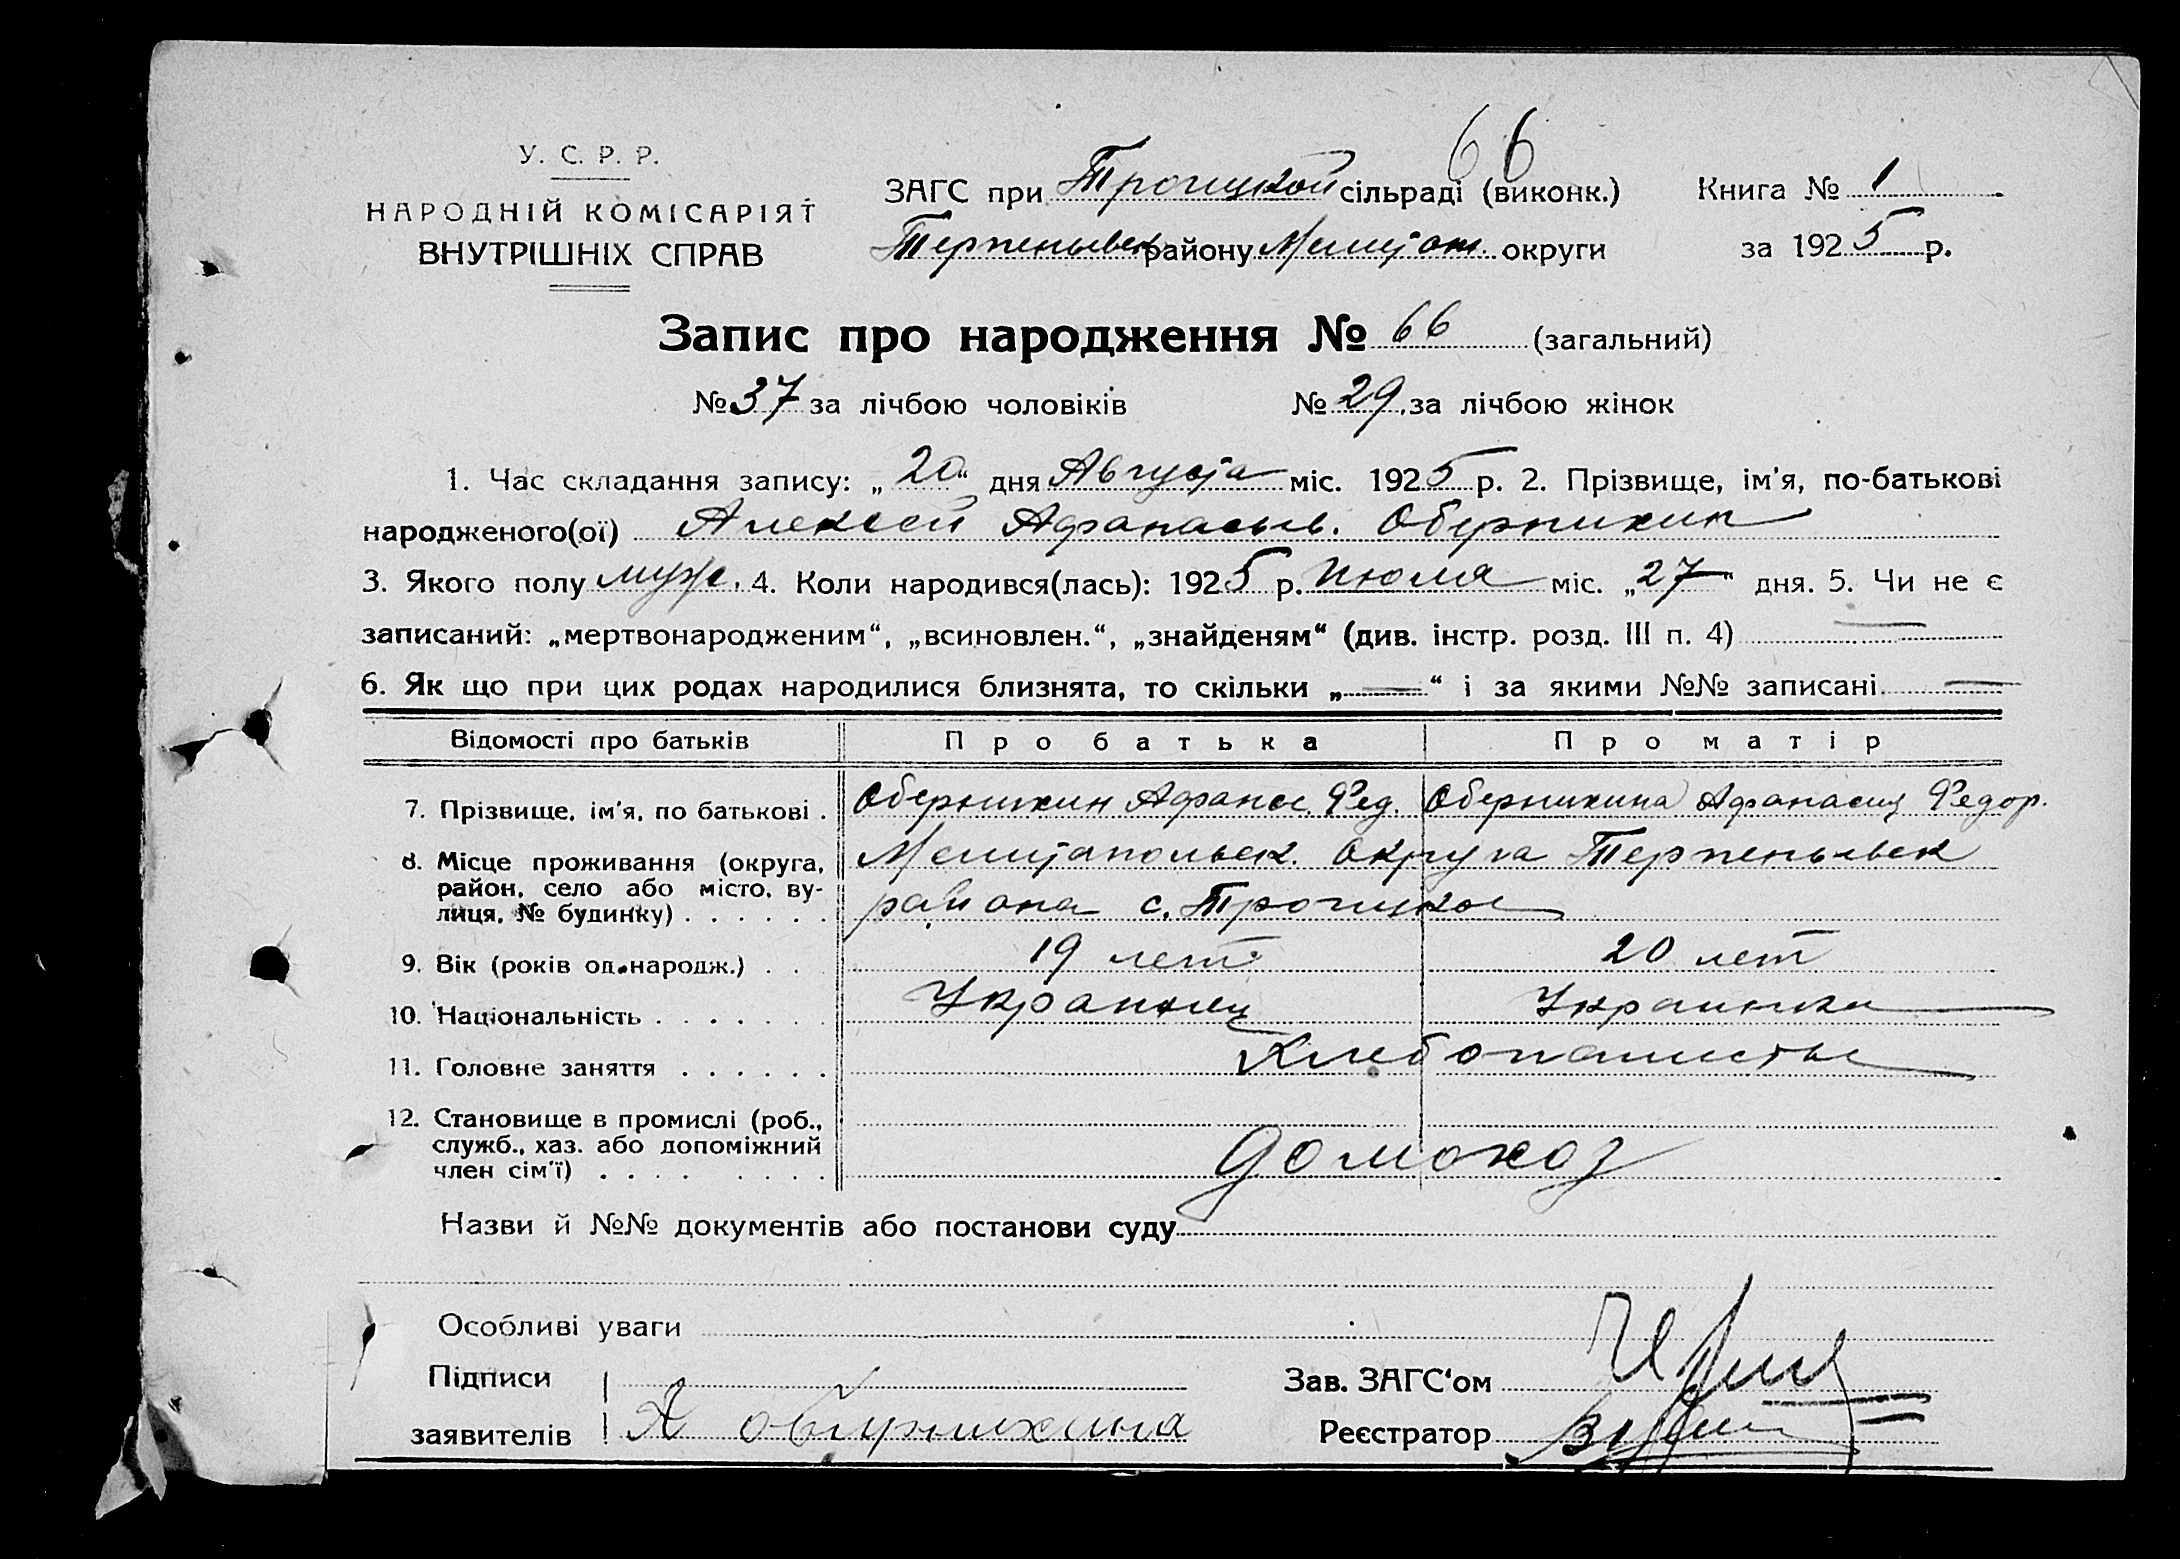 66
У. С. Р. Р.
НАРОДНІЙ КОМІСАРІЯТ
ВНУТРІШНІХ СПРАВ
ЗАГС при Троицкой сільраді (виконк.) Книга № 1
Терпеньевск району Мелитоп. округи за 1925 р.
Запис про народження № 66 (загальний)
№ 37 за лічбою чоловіків № 29 за лічбою жінок
1. Час складання запису: „ 20 “ дня Августа міс. 1925 р. 2. Прізвище, ім'я, по-батькові
народженого(ої) Алексей Афанасьев. Оберникин
3. Якого полу муж. 4. Коли народився(лась): 1925 р. июля міс. „27“ дня. 5. Чи не є
записаний: „мертвонародженим“, „всиновлен.“, „знайденям“ (див. інстр. розд. III п. 4) —
6. Як що при цих родах народилися близнята, то скільки „—“ і за якими №№ записані —
Відомості про батьків Про батька Про матір
7. Прізвище, ім'я, по батькові . Оберникин Афанас. Фед. Оберникина Федор.
8. Місце проживання (округа, район, село або місто, вулиця, № будинку) . . . . . . Мелитопольск. округа Терпеньевск
района с. Троицкое
9. Вік (років од народж.) . . 19 лет 20 лет
10. Національність . . . . . . . Украинец Украинка
11. Головне заняття . . . . . . Хлебопашество
12. Становище в промислі (роб., служб., хаз. або допоміжний член сім'ї) . . . . . . . . домохоз
Назви й №№ документів або постанови суду
Особливі уваги
Підписи
заявителів
А Обирнихина
Зав. ЗАГС‘ом
Реєстратор